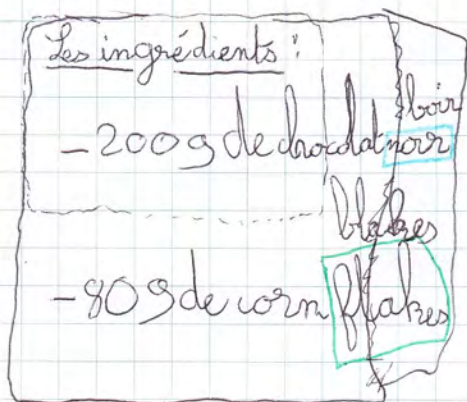 Les ingrédients :
boir
-200g de chocolat noir
blakes
-80g de corn flakes